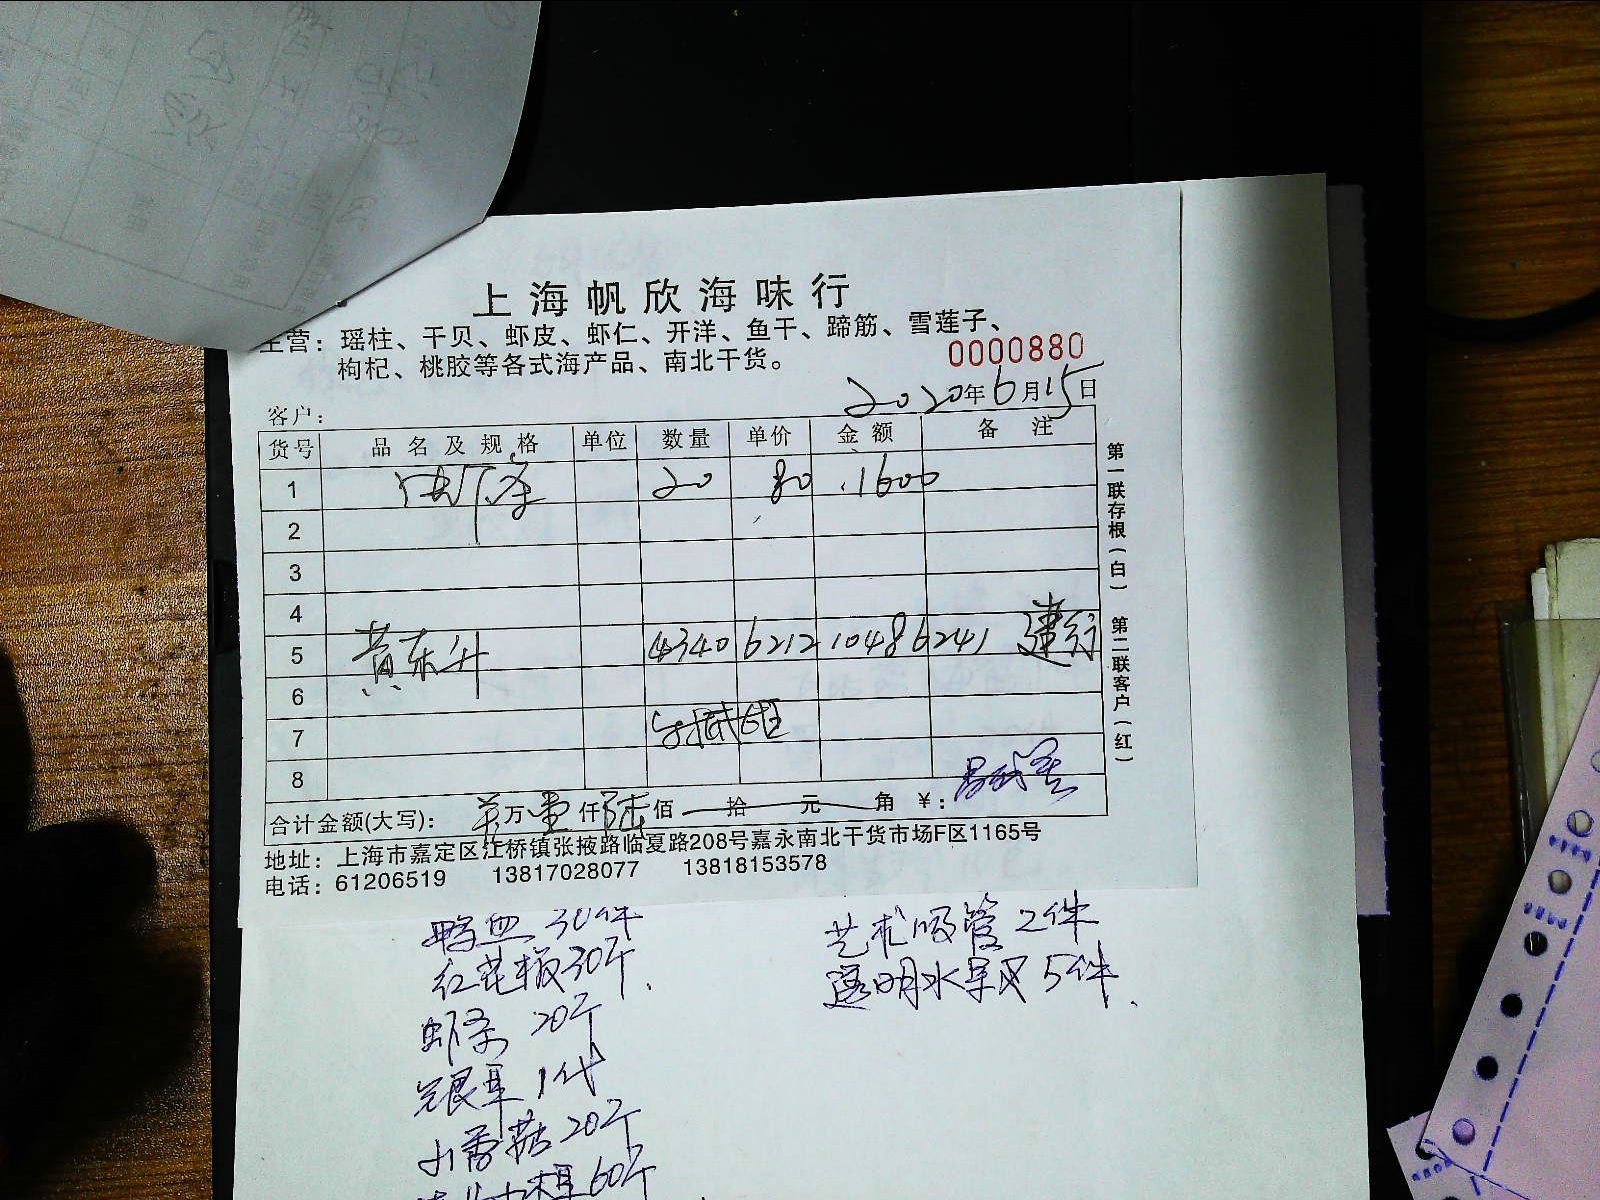 上海帆欣海味行
主营：瑶柱、干贝、虾皮、虾仁、开洋、鱼干、蹄筋、雪莲子、
枸杞、桃胶等各式海产品、南北干货。
0000880
2020年6月15日
客户：
货号 品名及规格 单位 数量 单价 金额 备注
1 虾仔 20 80 1600
2
3
4
5 黄东升 4340 6212 1048 6241 建行
6
7
8
合计金额(大写)： 万壹仟陆佰 拾 元 角 ￥：
地址：上海市嘉定区江桥镇张掖路临夏路208号嘉永南北干货市场F区1165号
电话：61206519 13817028077 13818153578
第一联存根(白) 第二联客户(红)
鸭血 30件
红花椒30斤.
虾仔 20斤
银耳 1代
小香菇20斤
木耳60斤
艺术吸管 2件
透明水 5件.